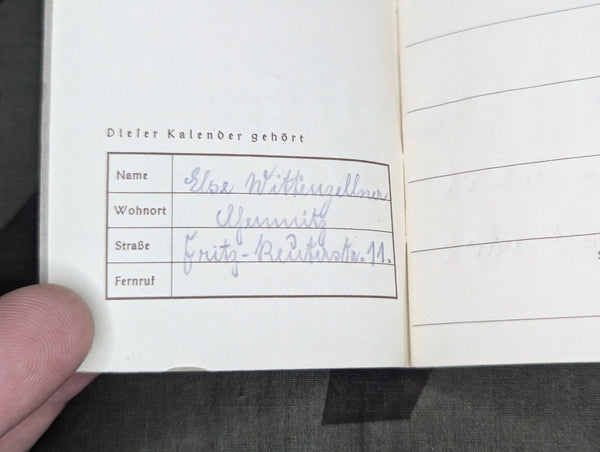 Dieser Kalender gehört
Name Else Wittenzellner
Wohnort Chemnitz
Straße Fritz-Reuterstr. 11.
Fernruf